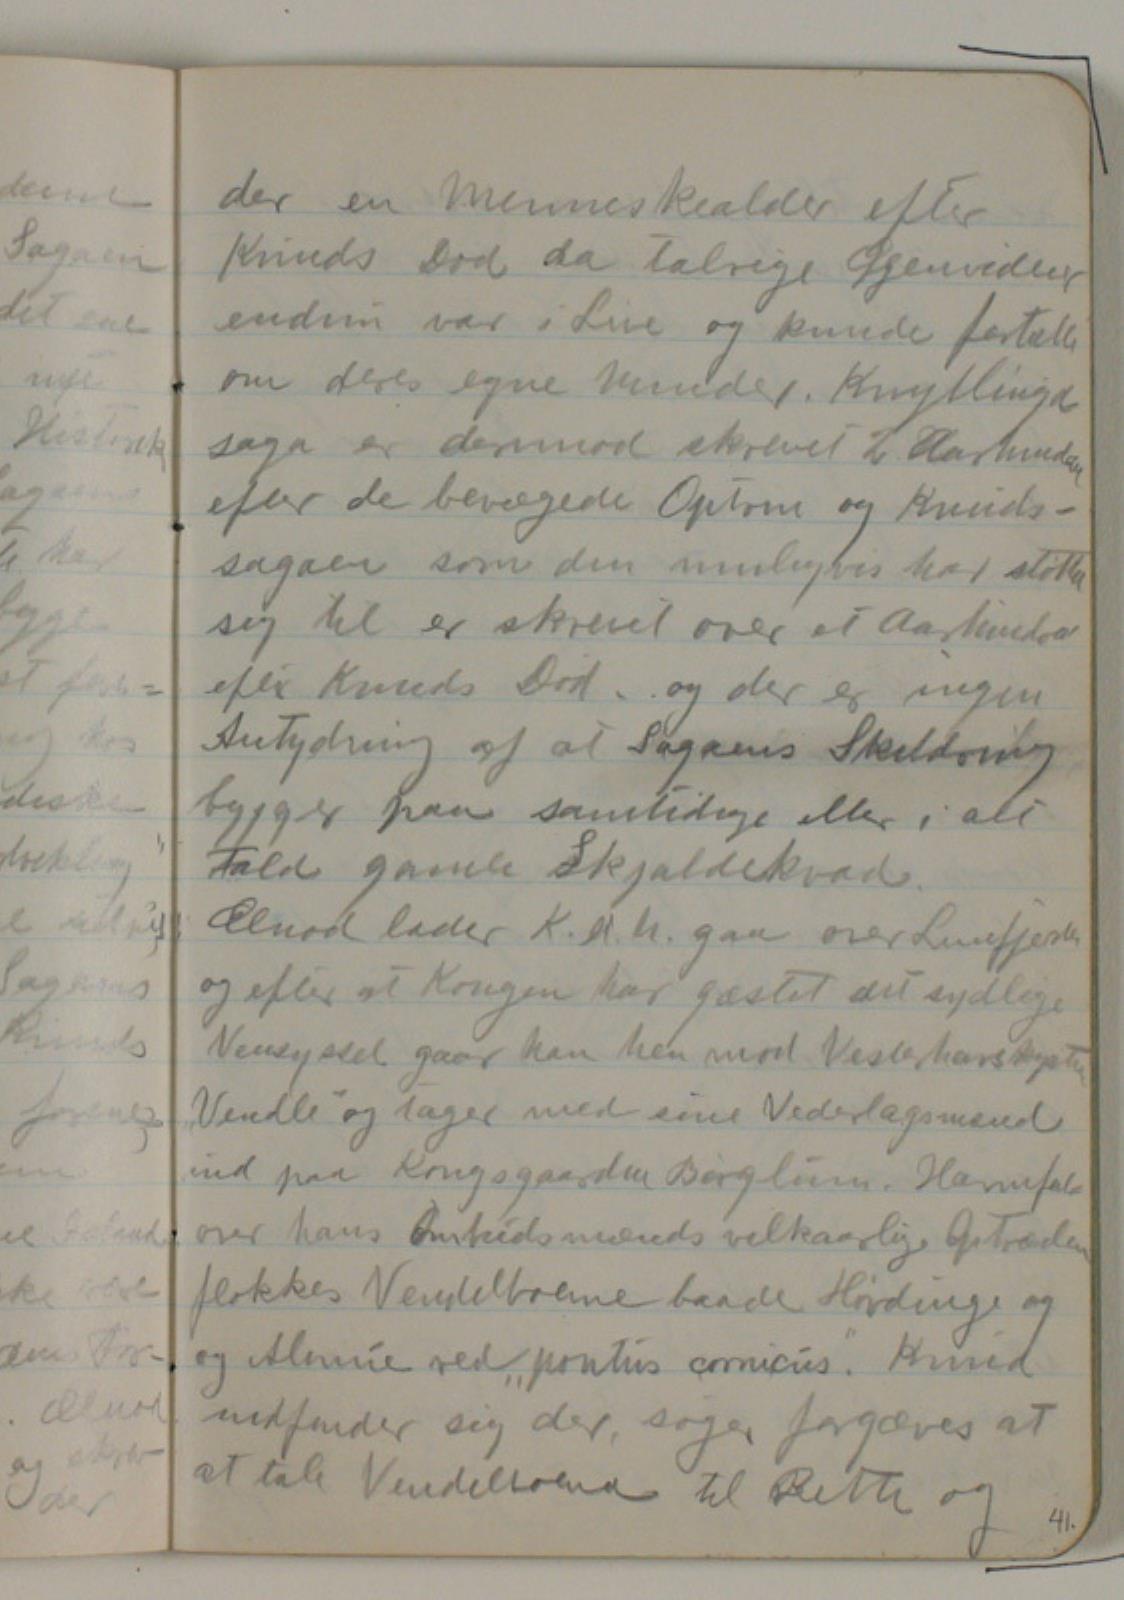 der en Menneskealder efter
Knuds Død da talrige Øjenvidner
endnu var i Live og kunde fortælle
om deres egne Minder. Knytlinga
saga er derimod skrevet 2 Aarhundr
efter de bevægede Optrin og Knuds-
sagaen som den muligvis har støttet
sig til er skrevet over et Aarhundr
efter Knuds Død. og der er ingen
Antydning af at Sagaens Skildring
bygger paa samtidige eller i alt
Fald gamle Skjaldekvad.
Ælnod lader K. d. h. gaa over Limfjorden
og efter at Kongen har gæstet det sydlige
Vensyssel gaar han hen mod Vesterhavskysten
„Vendle" og tager med sine Vederlagsmænd
ind paa Kongsgaarden Børglum. Harmfulde
over hans Ombudsmænds vilkaarlige Optræden
flokkes Vendelboerne baade Høvdinge og
og Almue ved „pontus cornicus". Knud
indfinder sig der, søger forgæves at
at tale Vendelboerne til Rette og
41.
dem
Sagaen
det ene
nye
Historisk
Sagaens
har
bygge
st
diske
Sagaens
Knuds
Island
ske være
Ælnod
og skrev
der